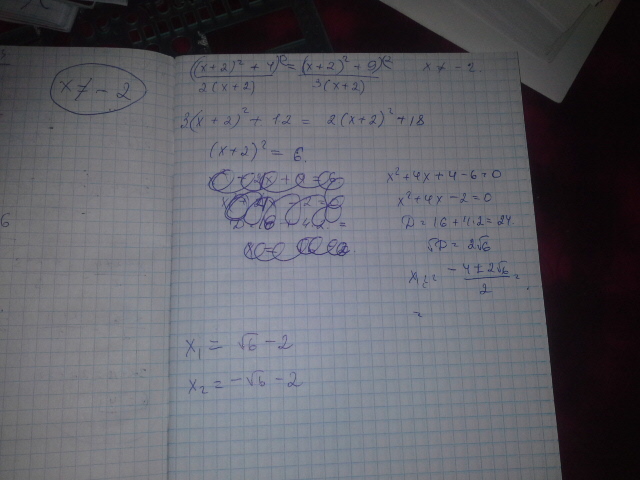 x ≠ -2
6
((x+2)² + 4) / 2(x+2) = ((x+2)² + 9) / 3(x+2) x ≠ -2.
3(x+2)² + 12 = 2(x+2)² + 18
(x+2)² = 6.
x² + 4x + 4 - 6 = 0
x² + 4x - 2 = 0
D = 16 + 4·2 = 24.
√D = 2√6
x₁,₂ = (-4 ± 2√6) / 2 =
=
x₁ = √6 - 2
x₂ = -√6 - 2